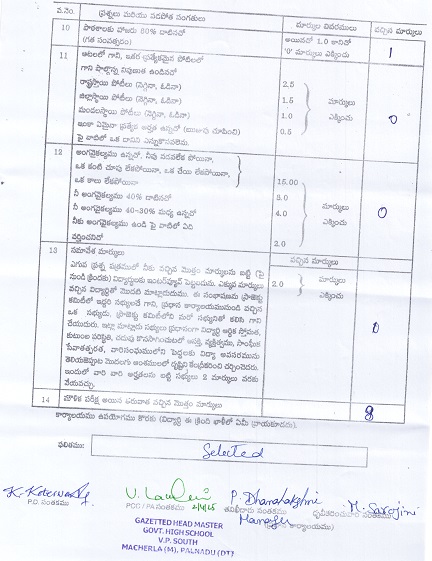 వ.నెం. ప్రశ్నలు మరియు సమాధాన సంగతులు మార్కుల వివరములు వచ్చిన మార్కులు
10 పాఠశాలకు హాజరు 80% దాటినచో అయినచో 1.0 కానిచో 1
(గత సంవత్సరం) '0' మార్కులు ఎక్కించు
11 ఆటలలో గాని, ఇతర ప్రత్యేకమైన పోటీలలో
గాని పాల్గొన్న నిపుణుత ఉండినచో
రాష్ట్రస్థాయి పోటీలు (నెగ్గినా, ఓడినా) 2.5
జిల్లాస్థాయి పోటీలు (నెగ్గినా, ఓడినా) 1.5 మార్కులు 0
మండలస్థాయి పోటీలు (నెగ్గినా, ఓడినా) 1.0 ఎక్కించు
ఇంకా ఏమైనా ప్రత్యేక అర్హత ఉన్నచో (ఋజువు చూపించి) 0.5
పై వాటిలో ఒక దానిని ఎన్నుకొనవలెను.
12 అంగవైకల్యము ఉన్నచో, నీవు నడవలేక పోయినా,
ఒక కంటి చూపు లేకపోయినా, ఒక చేయి లేకపోయినా,
ఒక కాలు లేకపోయినా 15.00
నీ అంగవైకల్యము 40% దాటినచో 8.0 మార్కులు 0
నీ అంగవైకల్యము 40-30% మధ్య ఉన్నచో 4.0 ఎక్కించు
నీకు అంగవైకల్యము ఉండి పై వాటిలో ఏది
వర్తించనిచో 2.0
13 సమావేశ మార్కులు వచ్చిన మార్కులు
ఎగువ ప్రశ్న పత్రములో నీకు వచ్చిన మొత్తం మార్కులను బట్టి (పై 2.0 మార్కులు
నుండి క్రిందకు) విద్యార్థులకు ఇంటర్వ్యూవ్ పెట్టబడును. ఎక్కువ మార్కులు ఎక్కించు
వచ్చిన విద్యార్థితో మొదటి మాట్లాడుదుము. ఈ సంభాషణను ప్రాజెక్టు
కమిటీలో ఇద్దరి సభ్యులచే గాని, ప్రధాన కార్యాలయమునుండి వచ్చిన 0
ఒక సభ్యుడు, ప్రాజెక్ట్ కమిటీలోని మరో సభ్యునితో కలిసి గాని
చేయుదురు. ఇట్లా మాట్లాడు సభ్యులు ప్రధానంగా విద్యార్థి ఆర్థిక స్తోమత,
కుటుంబ పరిస్థితి, చదువు కొనసాగించుటలో ఆసక్తి, వ్యక్తిత్వము, సాంఘిక
సేవాతత్పరత, వారిసంఘములోని పెద్దలకు విద్యా అవసరమును
తెలియజెప్పుట మొదలగు అంశములలో దృష్టిని కేంద్రీకరించి చర్చించెదరు.
ఇందులో వారి వారి అర్హతలను బట్టి సభ్యులు 2 మార్కులు వరకు
వేయవచ్చు.
14 మౌఖిక పరీక్ష అయిన తరువాత వచ్చిన మొత్తం మార్కులు 8
కార్యాలయము ఉపయోగము కొరకు (విద్యార్థి ఈ క్రింది ఖాళీలో ఏమీ వ్రాయకూడదు).
ఫలితము: Selected
P. Dhanalakshmi
M. Sarojini
P.D. సంతకము PCC / PA సంతకము 2/4/25
GAZETTED HEAD MASTER
GOVT. HIGH SCHOOL
V.P. SOUTH
MACHERLA (M), PALNADU (DT)